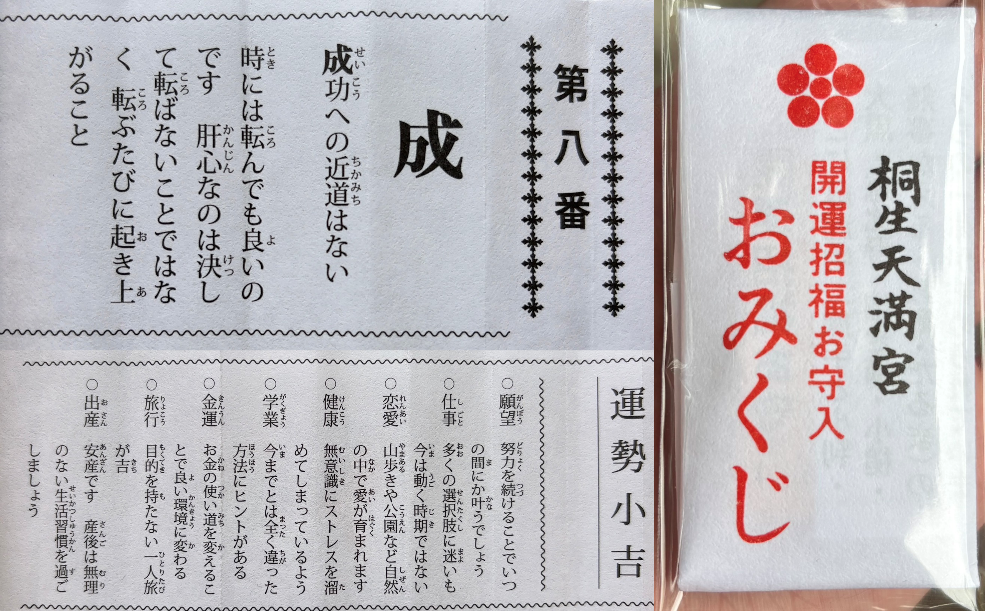 第八番
成
成功への近道はない
時には転んでも良いの
です　肝心なのは決し
て転ばないことではな
く　転ぶたびに起き上
がること
運勢小吉
○願望　努力を続けることでいつ
の間にか叶うでしょう
○仕事　多くの選択肢に迷いも
今は動く時期ではない
○恋愛　山歩きや公園など自然
の中で愛が育まれます
○健康　無意識にストレスを溜
めてしまっているよう
○学業　今までとは全く違った
方法にヒントがある
○金運　お金の使い道を変えるこ
とで良い環境に変わる
○旅行　目的を持たない一人旅
が吉
○出産　安産です　産後は無理
のない生活習慣を過ご
しましょう
桐生天満宮
開運招福お守入
おみくじ